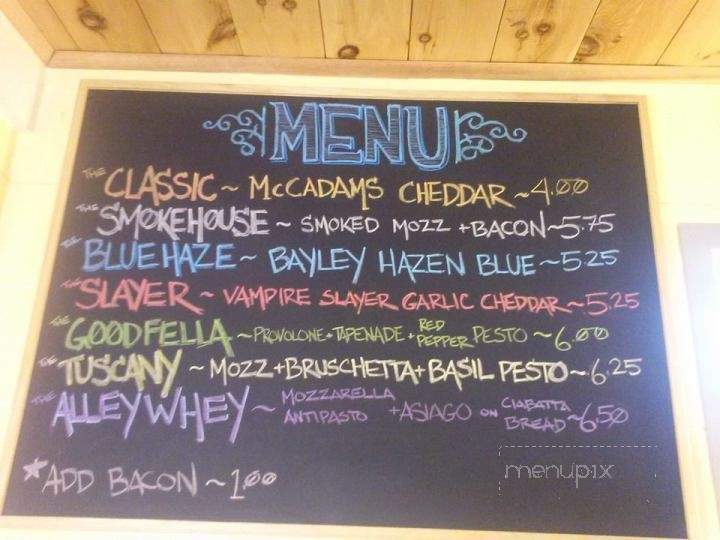 MENU
THE CLASSIC ~ McCADAMS CHEDDAR ~ 4.00
THE SMOKEHOUSE ~ SMOKED MOZZ + BACON ~ 5.75
THE BLUE HAZE ~ BAYLEY HAZEN BLUE ~ 5.25
THE SLAYER ~ VAMPIRE SLAYER GARLIC CHEDDAR ~ 5.25
THE GOODFELLA ~ PROVOLONE + TAPENADE + RED PEPPER PESTO ~ 6.00
THE TUSCANY ~ MOZZ + BRUSCHETTA + BASIL PESTO ~ 6.25
THE ALLEY WHEY ~ MOZZARELLA ANTIPASTO + ASIAGO ON CIABATTA BREAD ~ 6.50
*ADD BACON ~ 1.00
menupix